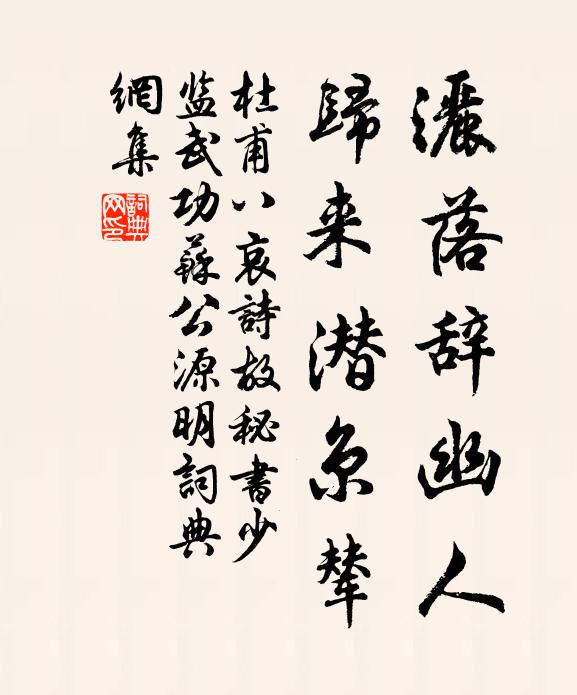 灑落辞幽人
歸来潜京辇
杜甫八哀詩故秘書少
监武功蘇公源明詞典
網集
詞典网印